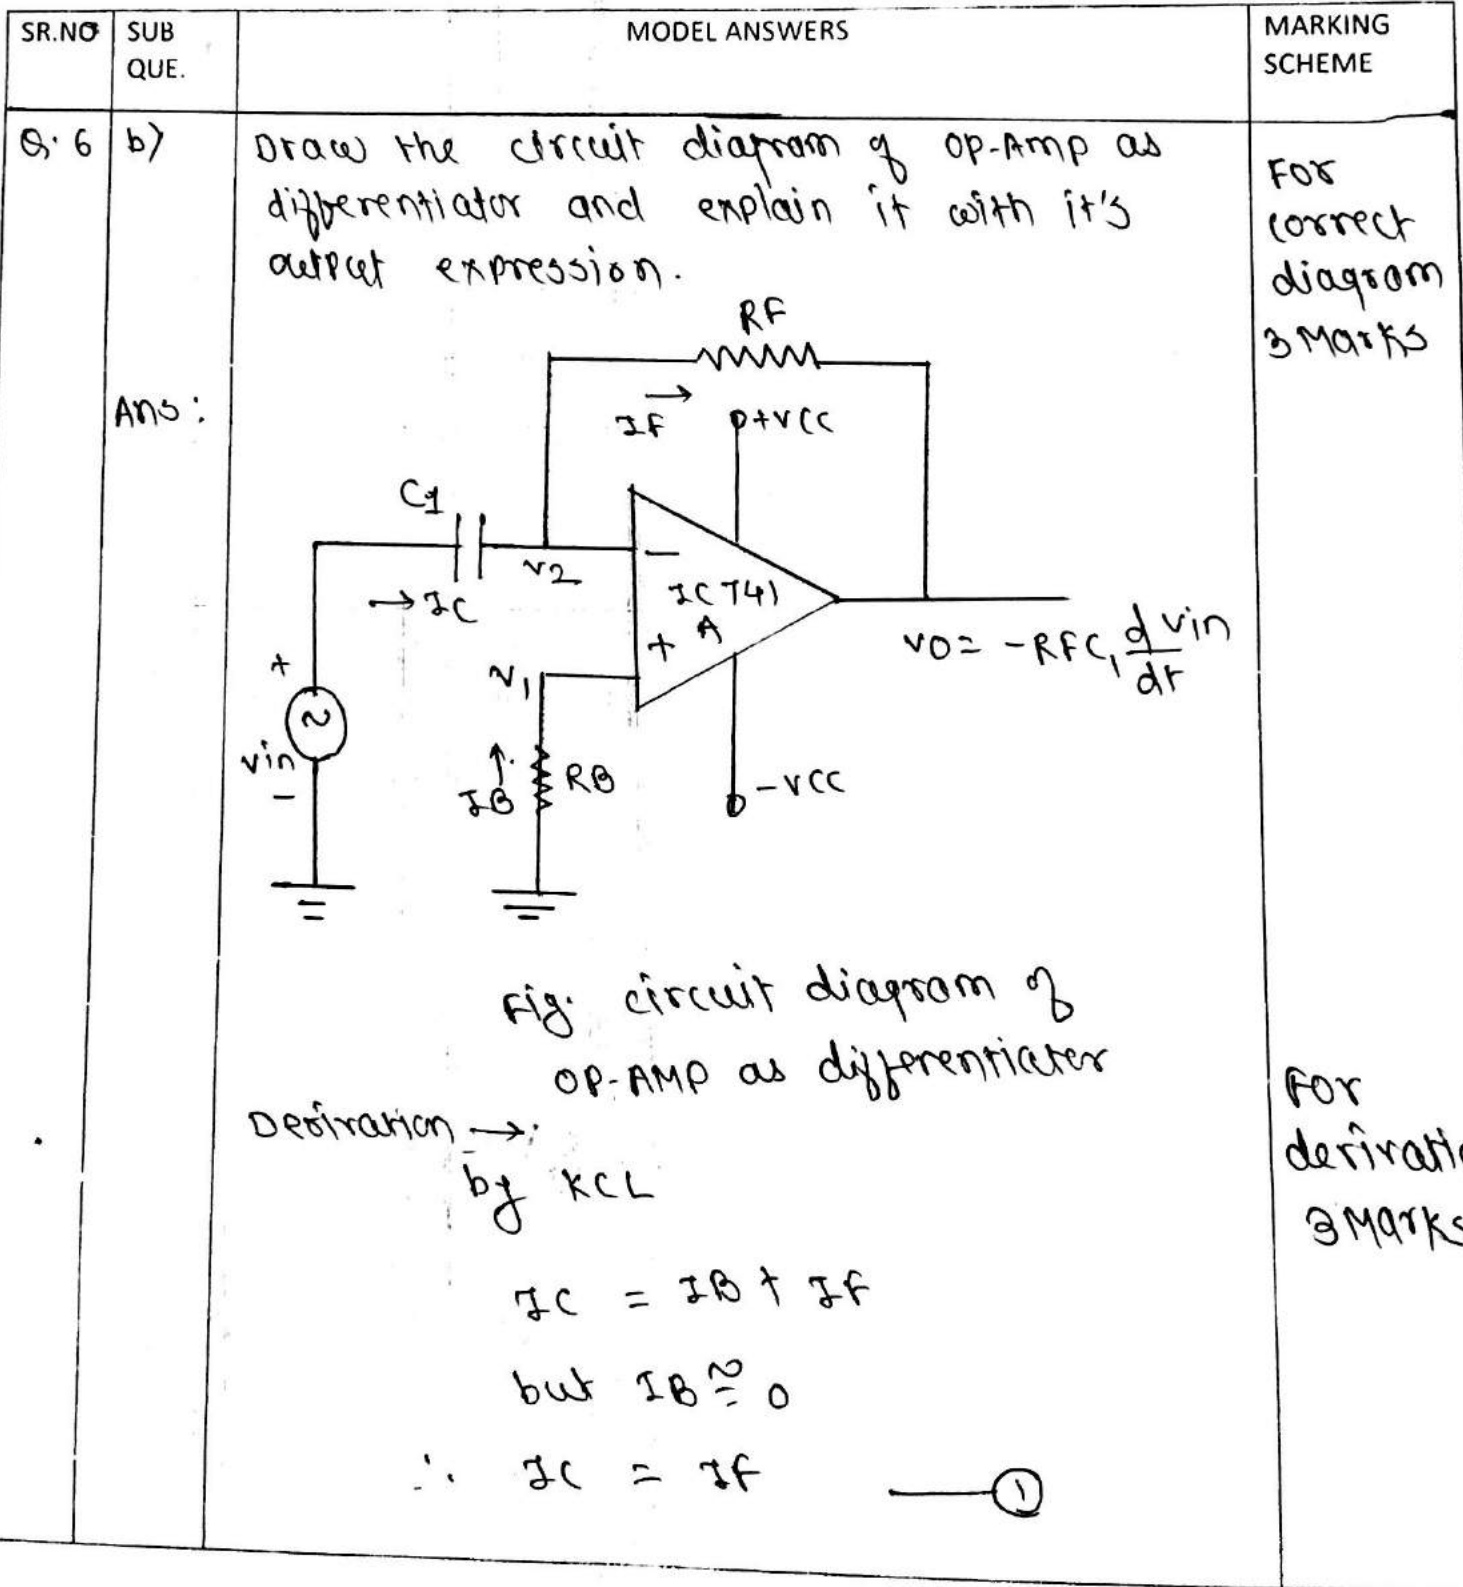 SR.NO SUB QUE. MODEL ANSWERS MARKING SCHEME
Q.6 b) Draw the circuit diagram of OP-Amp as
differentiator and explain it with it's
output expression.
For
correct
diagram
3 Marks
Ans:
RF
IF →
+VCC
C1
V2
→ IC
−
IC 741
+ A
VO = -RFC1 d vin/dt
V1
+
~
vin
−
IB ↑
RB
-VCC
Fig. circuit diagram of
OP-AMP as differentiater
Derivation →:
For
derivati
3 Marks
by KCL
IC = IB + IF
but IB ≅ 0
∴ IC = IF —— ①